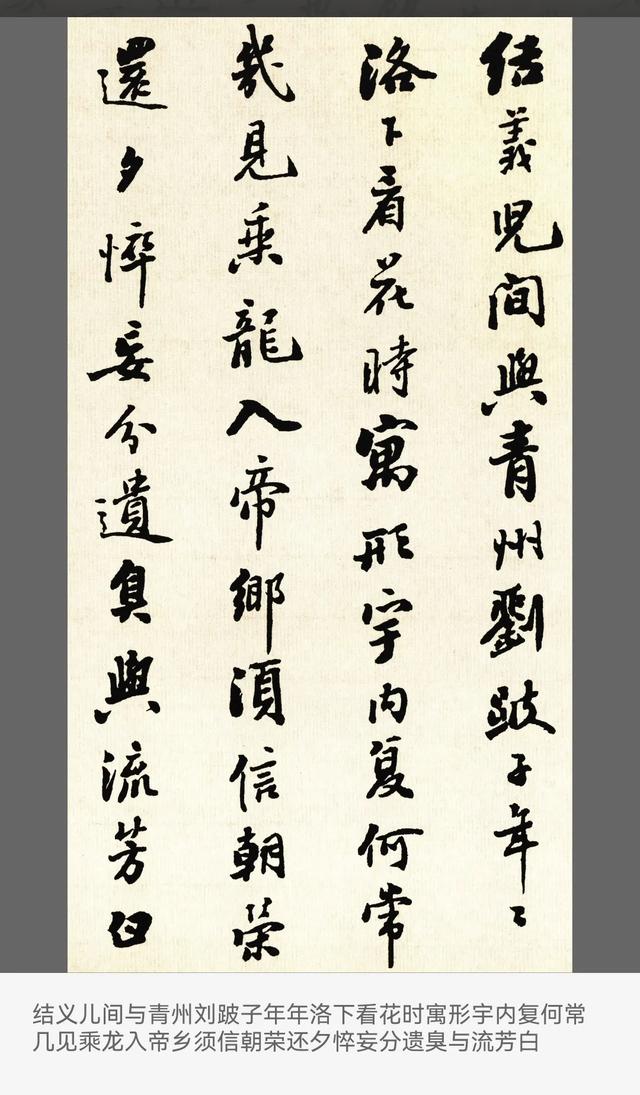 结義児間與青州劉跛子年〻
洛下看花時寓形宇内复何常
幾見乗龍入帝鄉須信朝荣
還夕悴妄分遺臭與流芳白
结义儿间与青州刘跛子年年洛下看花时寓形宇内复何常
几见乘龙入帝乡须信朝荣还夕悴妄分遗臭与流芳白